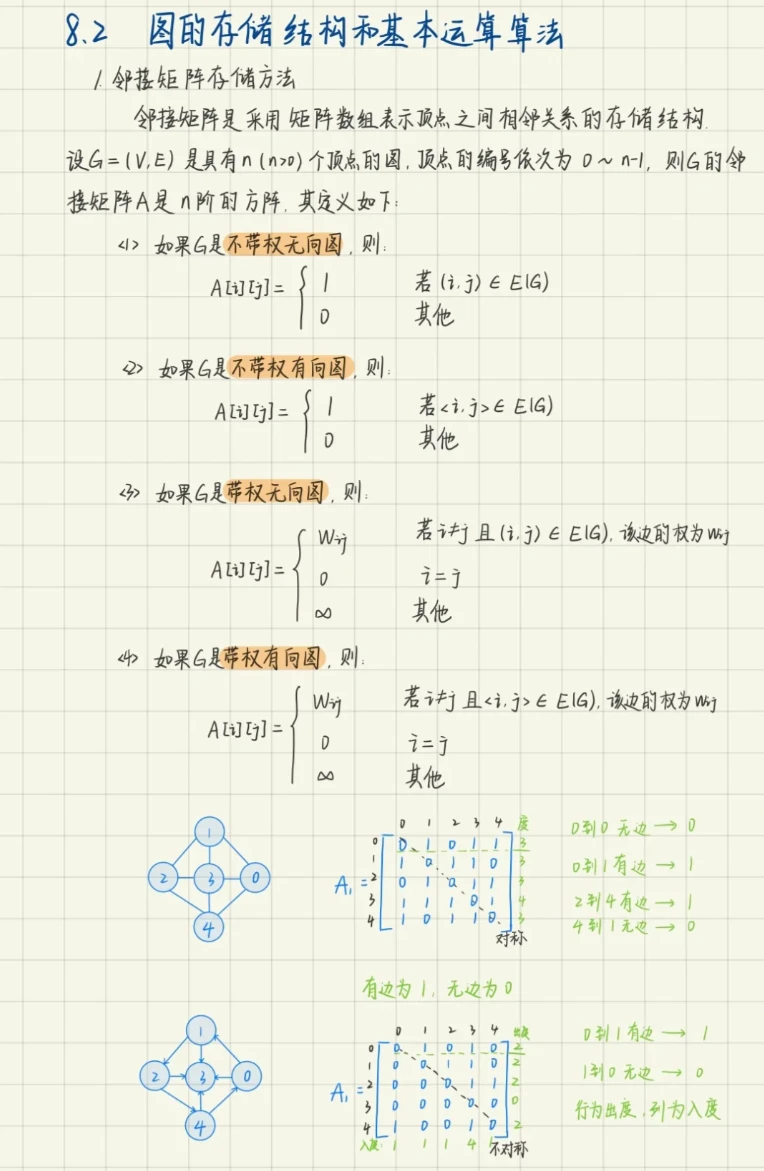 8.2 图的存储结构和基本运算算法
1. 邻接矩阵存储方法
邻接矩阵是采用矩阵数组表示顶点之间相邻关系的存储结构.
设G=(V,E)是具有n(n>0)个顶点的图,顶点的编号依次为 0~n-1, 则G的邻
接矩阵A是n阶的方阵,其定义如下:
<1> 如果G是不带权无向图,则:
A[i][j]= { 1 若(i,j)∈E(G)
0 其他
<2> 如果G是不带权有向图,则:
A[i][j]= { 1 若<i,j>∈E(G)
0 其他
<3> 如果G是带权无向图,则:
Wij 若i≠j且(i,j)∈E(G),该边的权为Wij
A[i][j]= { 0 i=j
∞ 其他
<4> 如果G是带权有向图,则:
Wij 若i≠j且<i,j>∈E(G),该边的权为Wij
A[i][j]= { 0 i=j
∞ 其他
1
2 3 0
4
0 1 2 3 4 度
0 0 1 0 1 1 3
1 1 0 1 1 0 3
A₁= 2 0 1 0 1 1 3
3 1 1 1 0 1 4
4 1 0 1 1 0 3
对称
0到0无边→0
0到1有边→1
2到4有边→1
4到1无边→0
有边为1,无边为0
1
2 3 0
4
0 1 2 3 4 出度
0 0 1 0 1 0 2
1 0 0 1 1 0 2
A₁= 2 0 0 0 1 1 2
3 0 0 0 0 0 0
4 1 0 0 1 0 2
入度: 1 1 1 4 1
不对称
0到1有边→1
1到0无边→0
行为出度,列为入度